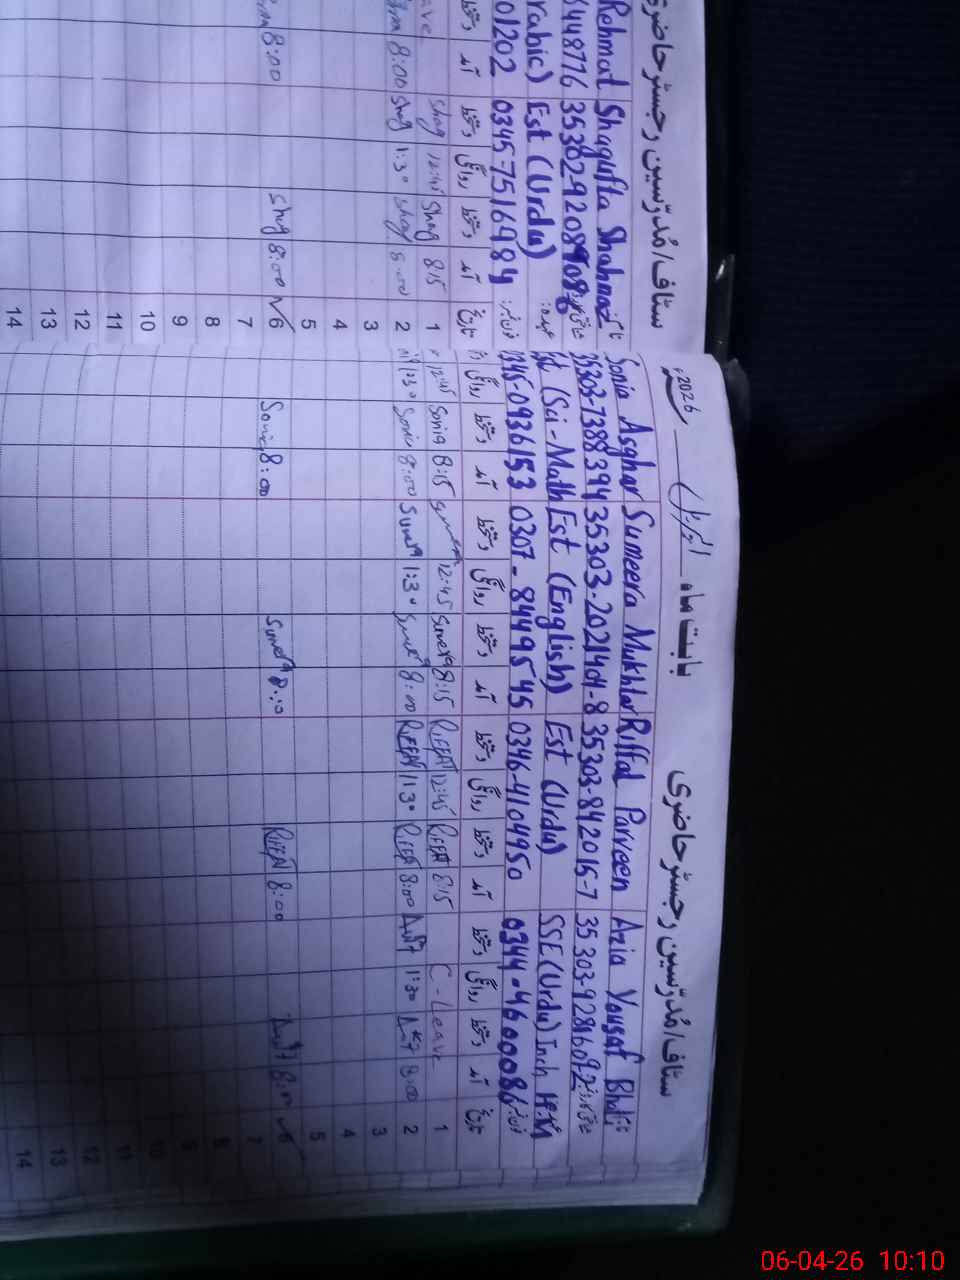 سٹاف/مُدرّسین رجسٹر حاضری
Rehmat Shagufta Shahnaz نام
6448776 3530292089086
Arabic) Est (Urdu) عہدہ:
01202 0345-7516984 فون نمبر:
آمد دستخط روانگی دستخط آمد تاریخ
Leave Shag 12:45 Shag 8:15 1
8:00 Shag 1:30 Shag 8:00 2
3
4
5
8:00 Shag 8:00 6
7
8
9
10
11
12
13
14
سٹاف/مُدرّسین رجسٹر حاضری بابت ماہ اپریل 2026ء
Sonia Asghar Sumeera Mukhtar Riffat Parveen Azia Yousaf Bhatti نام
35303-7388394 35303-2021401-8 35303-842015-7 35303-9281609
Est (Sci-Math) Est (English) Est (Urdu) SSE (Urdu) Inch. H.M
0345-0936153 0307-8449545 0346-4104950 0344-4600086 فون نمبر:
روانگی دستخط آمد دستخط روانگی دستخط آمد دستخط روانگی دستخط آمد دستخط روانگی دستخط آمد تاریخ
12:45 Sonia 8:15 12:45 Sumera 8:15 RIFFAT 12:45 RIFFAT 8:15 C-Leave 1
1:30 Sonia 8:00 Sumera 1:30 8:00 RIFFAT 1:30 RIFFAT 8:00 1:30 8:00 2
3
4
5
Sonia 8:00 Sumera RIFFAT 8:00 6
7
8
9
10
11
12
13
14
06-04-26 10:10